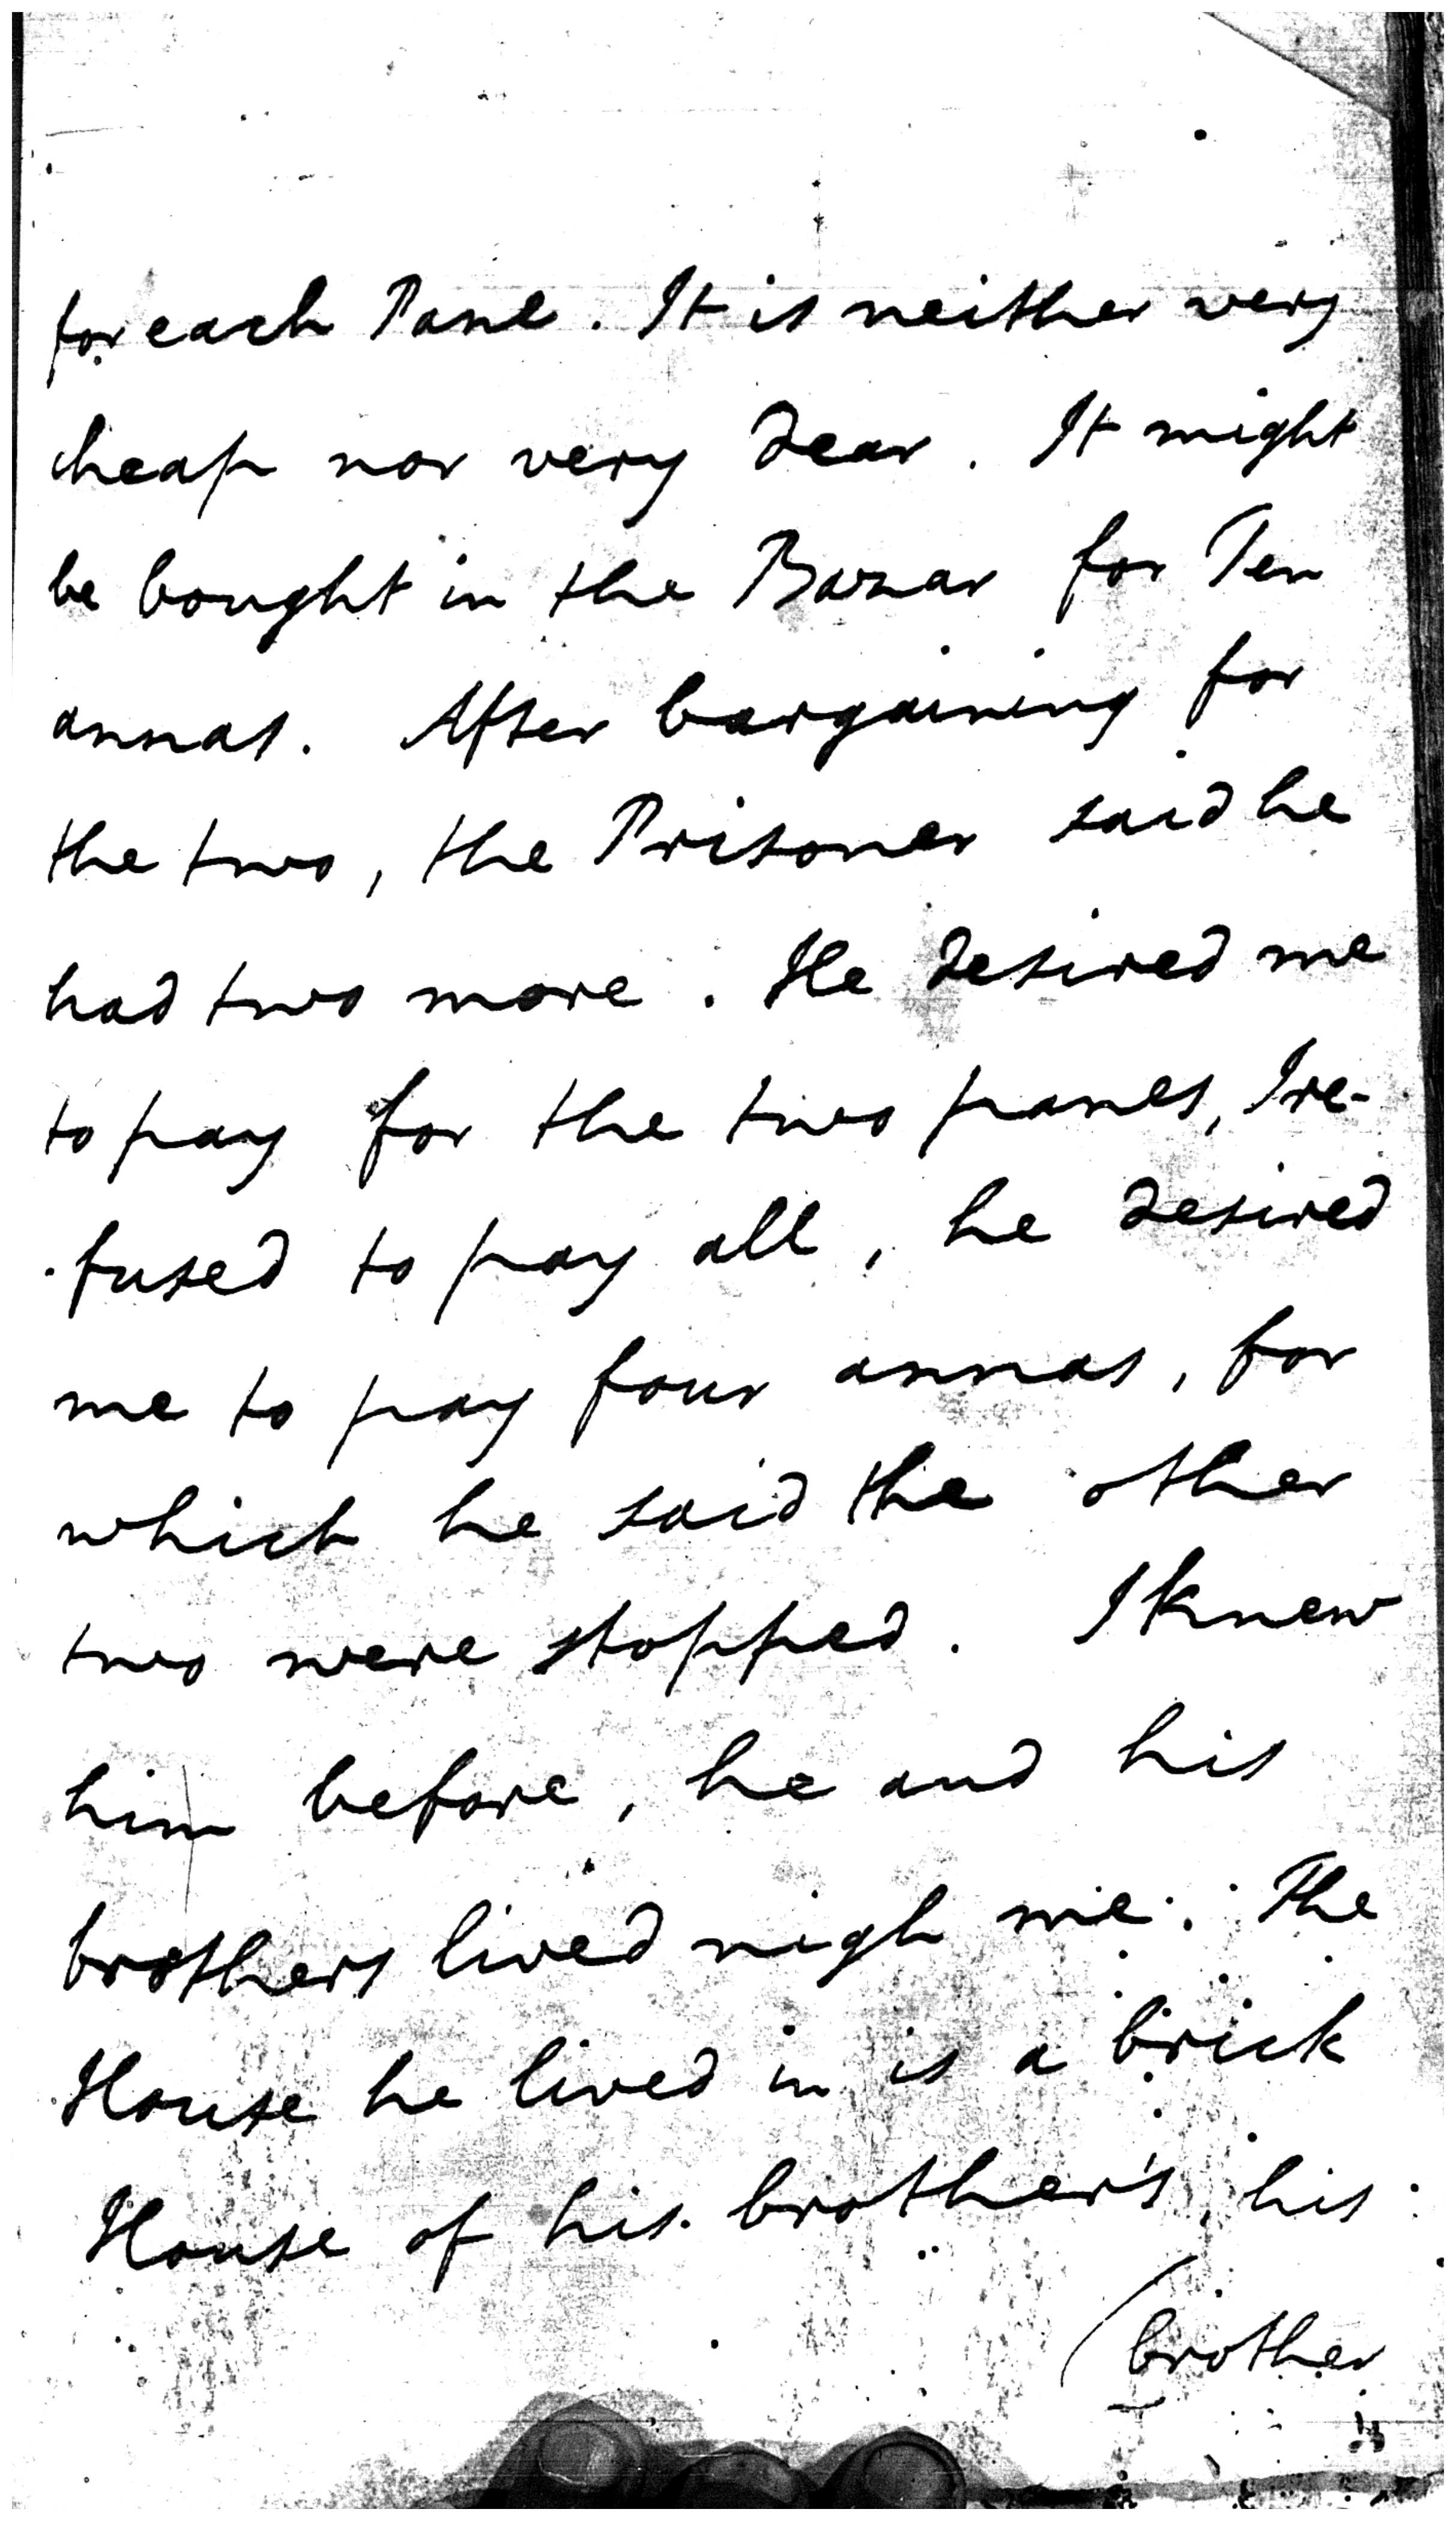 for each Pane. It is neither very
cheap nor very dear. It might
be bought in the Bazar for Ten
annas. After bargaining for
the two, the Prisoner said he
had two more. He desired me
to pay for the two panes, I re-
fused to pay all, he desired
me to pay four annas, for
which he said the other
two were stopped. I knew
him before, he and his
brothers lived nigh me. The
House he lived in is a brick
House of his brother's, his
brother